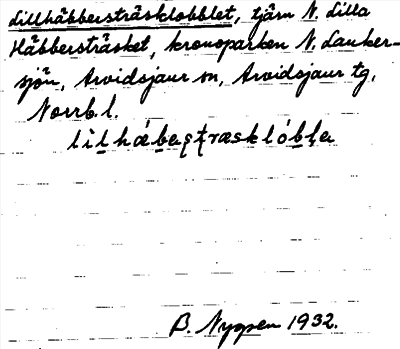 Lillhäbbersträsklobblet, tjärn N. Lilla
Häbbersträsket, kronoparken N. Lauker-
sjön, Arvidsjaur sn, Arvidsjaur tg,
Norrb. l.
lìlhǽbaʂtræskló̱bla
B. Nygren 1932.